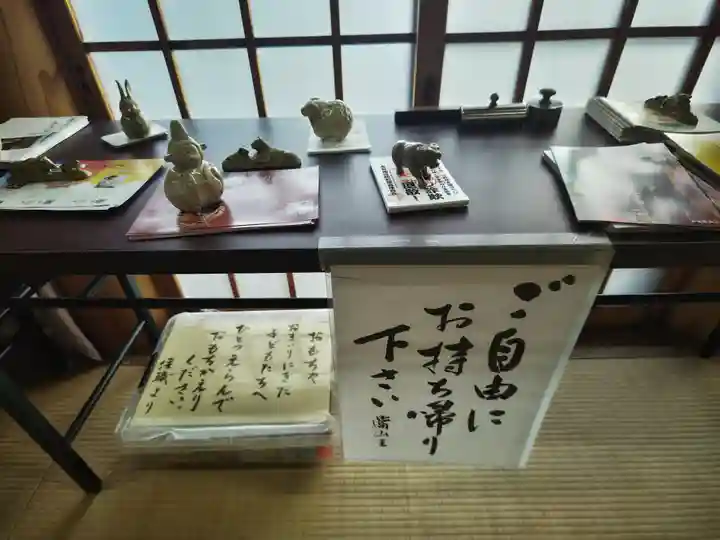 ご自由に
お持ち帰り
下さい
おもちゃ
おまいりにきた
子どもたちへ
ひとつえらんで
おもちかえり
ください
住職より